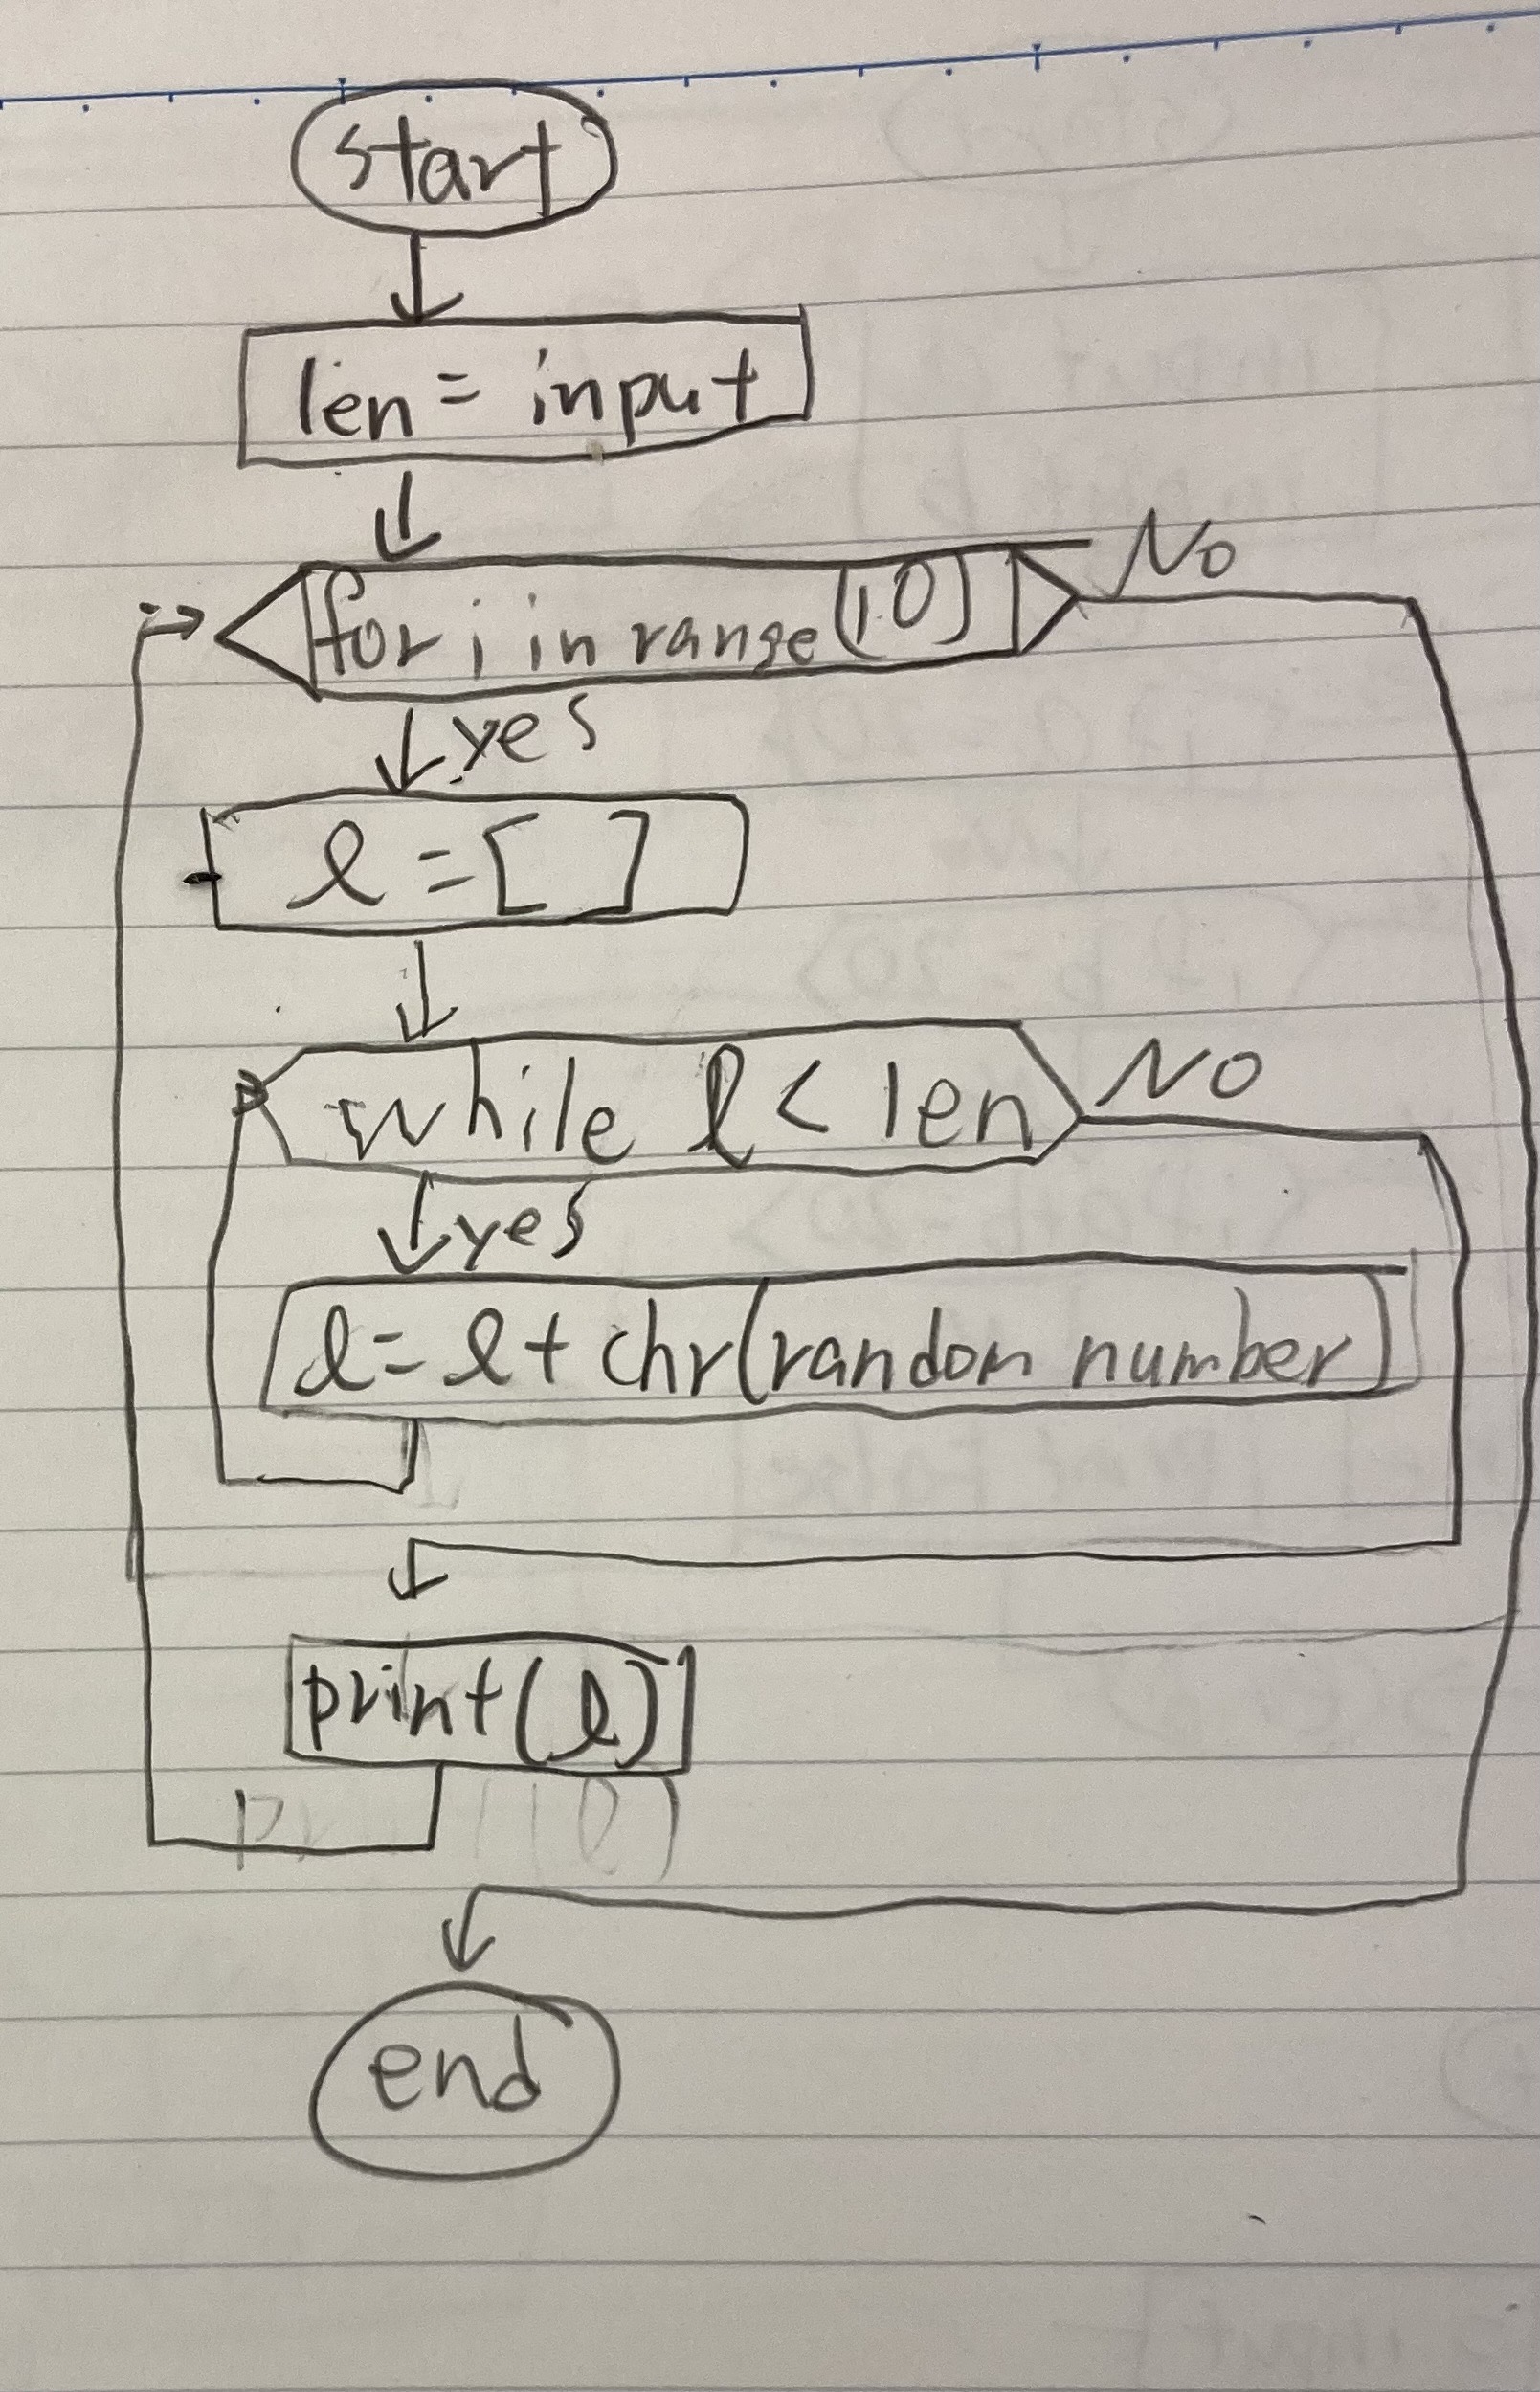 start
len = input
for i in range(10)
No
yes
l = [ ]
while l < len
NO
yes
l = l + chr(random number)
print(l)
end